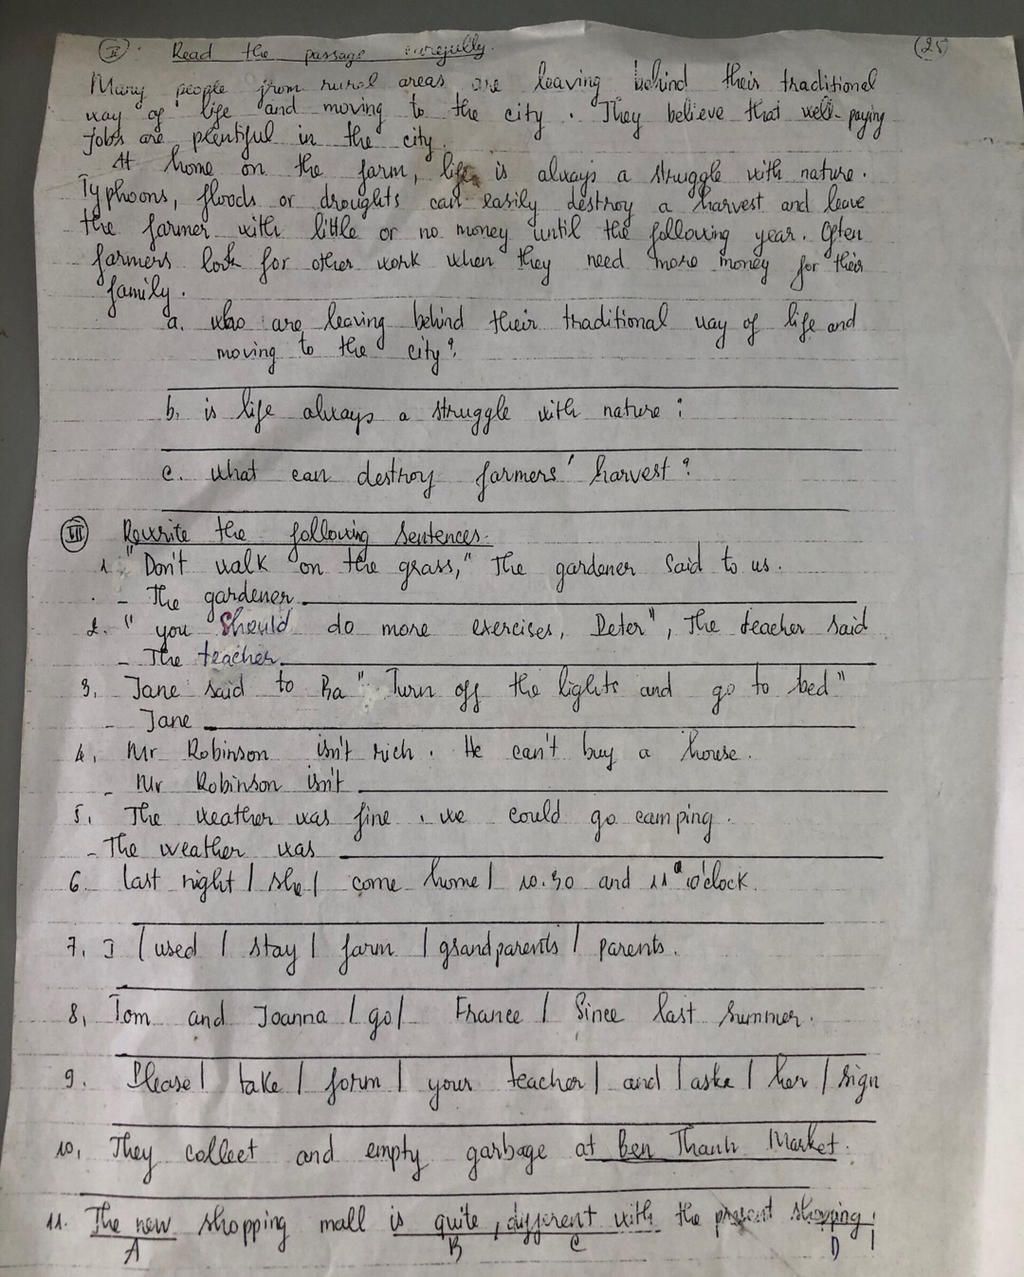 II. Read the passage carefully. (25)
Many people from rural areas are leaving behind their traditional
way of life and moving to the city. They believe that well-paying
jobs are plentiful in the city.
At home on the farm, life is always a struggle with nature.
Typhoons, floods or droughts can easily destroy a harvest and leave
the farmer with little or no money until the following year. Often
farmers look for other work when they need more money for their
family.
a. who are leaving behind their traditional way of life and
moving to the city?
b, is life always a struggle with nature?
c. what can destroy farmers' harvest?
VII Rewrite the following sentences.
1. "Don't walk on the grass," The gardener said to us.
- The gardener
2. "you should do more exercises, Peter", The teacher said
- The teacher
3, Jane said to Ba "Turn off the lights and go to bed"
- Jane
4, Mr Robinson isn't rich. He can't buy a house.
- Mr Robinson isn't
5, The weather was fine. we could go camping.
- The weather was
6. last night / she / come home / 10.30 and 11 o'clock.
7, I / used / stay / farm / grandparents / parents.
8, Tom and Joanna / go / France / Since last summer.
9. Please / take / form / your teacher / and / aske / her / sign
10, They collect and empty garbage at Ben Thanh Market.
11. The new shopping mall is quite, different with the present shopping!
A B C D